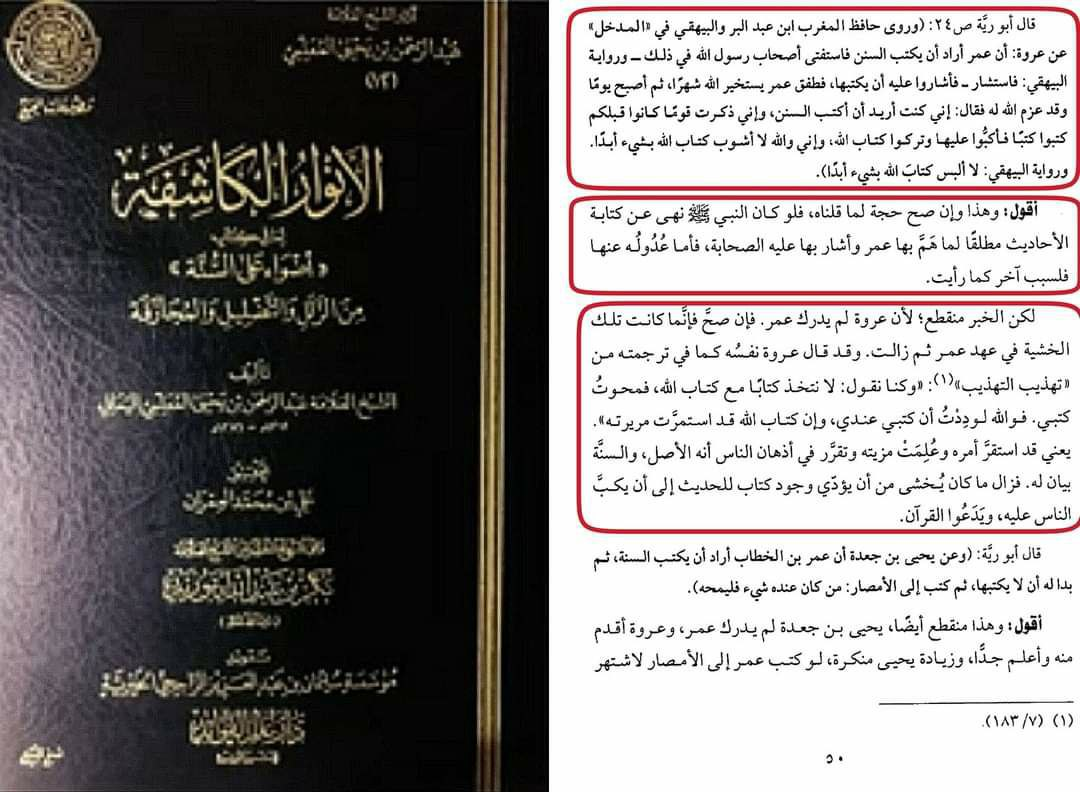 آثار الشيخ العلامة
عبد الرحمن بن يحيى المعلمي
(١٢)
الأنوار الكاشفة
لما في كتاب
«أضواء على السنة»
من الزلل والتضليل والمجازفة
تأليف
الشيخ العلامة عبد الرحمن بن يحيى المعلمي اليماني
تحقيق
علي بن محمد العمران
بكر بن عبد الله أبو زيد
تمويل
مؤسسة سليمان بن عبد العزيز الراجحي الخيرية
دار عالم الفوائد
قال أبو ريَّة ص٢٤: (وروى حافظ المغرب ابن عبد البر والبيهقي في «المدخل»
عن عروة: أن عمر أراد أن يكتب السنن فاستفتى أصحاب رسول الله في ذلك ــ ورواية
البيهقي: فاستشار ــ فأشاروا عليه أن يكتبها، فطفق عمر يستخير الله شهرًا، ثم أصبح يومًا
وقد عزم الله له فقال: إني كنت أريد أن أكتب السنن، وإني ذكرت قومًا كانوا قبلكم
كتبوا كتبًا فأكبُّوا عليها وتركوا كتاب الله، وإني والله لا أشوب كتاب الله بشيء أبدًا.
ورواية البيهقي: لا ألبس كتابَ الله بشيء أبدًا).
أقول: وهذا وإن صح حجة لما قلناه، فلو كان النبي ﷺ نهى عن كتابة
الأحاديث مطلقًا لما هَمَّ بها عمر وأشار بها عليه الصحابة، فأما عُدُولُه عنها
فلسبب آخر كما رأيت.
لكن الخبر منقطع؛ لأن عروة لم يدرك عمر. فإن صحَّ فإنَّما كانت تلك
الخشية في عهد عمر ثم زالت. وقد قال عروة نفسُه كما في ترجمته من
«تهذيب التهذيب»(١): «وكنا نقول: لا نتخذ كتابًا مع كتاب الله، فمحوتُ
كتبي. فوالله لوددْتُ أن كتبي عندي، وإن كتاب الله قد استمرَّت مريرته».
يعني قد استقرَّ أمره وعُلِمَتْ مزيته وتقرَّر في أذهان الناس أنه الأصل، والسنَّة
بيان له. فزال ما كان يُخشى من أن يؤدّي وجود كتاب للحديث إلى أن يكبَّ
الناس عليه، ويَدَعُوا القرآن.
قال أبو ريَّة: (وعن يحيى بن جعدة أن عمر بن الخطاب أراد أن يكتب السنة، ثم
بدا له أن لا يكتبها، ثم كتب إلى الأمصار: من كان عنده شيء فليمحه).
أقول: وهذا منقطع أيضًا، يحيى بن جعدة لم يدرك عمر، وعروة أقدم
منه وأعلم جدًّا، وزيادة يحيى منكرة، لو كتب عمر إلى الأمصار لاشتهر
(١) (٧/ ١٨٣).
٥٠